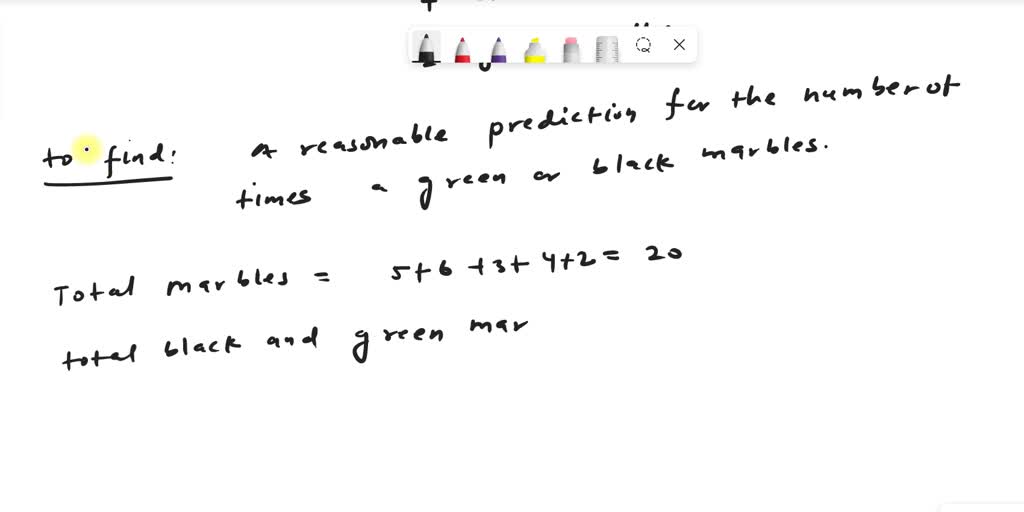 to find: A reasonable prediction for the number of
times a green or black marbles.
Total marbles = 5+6+3+4+2= 20
total black and green mar